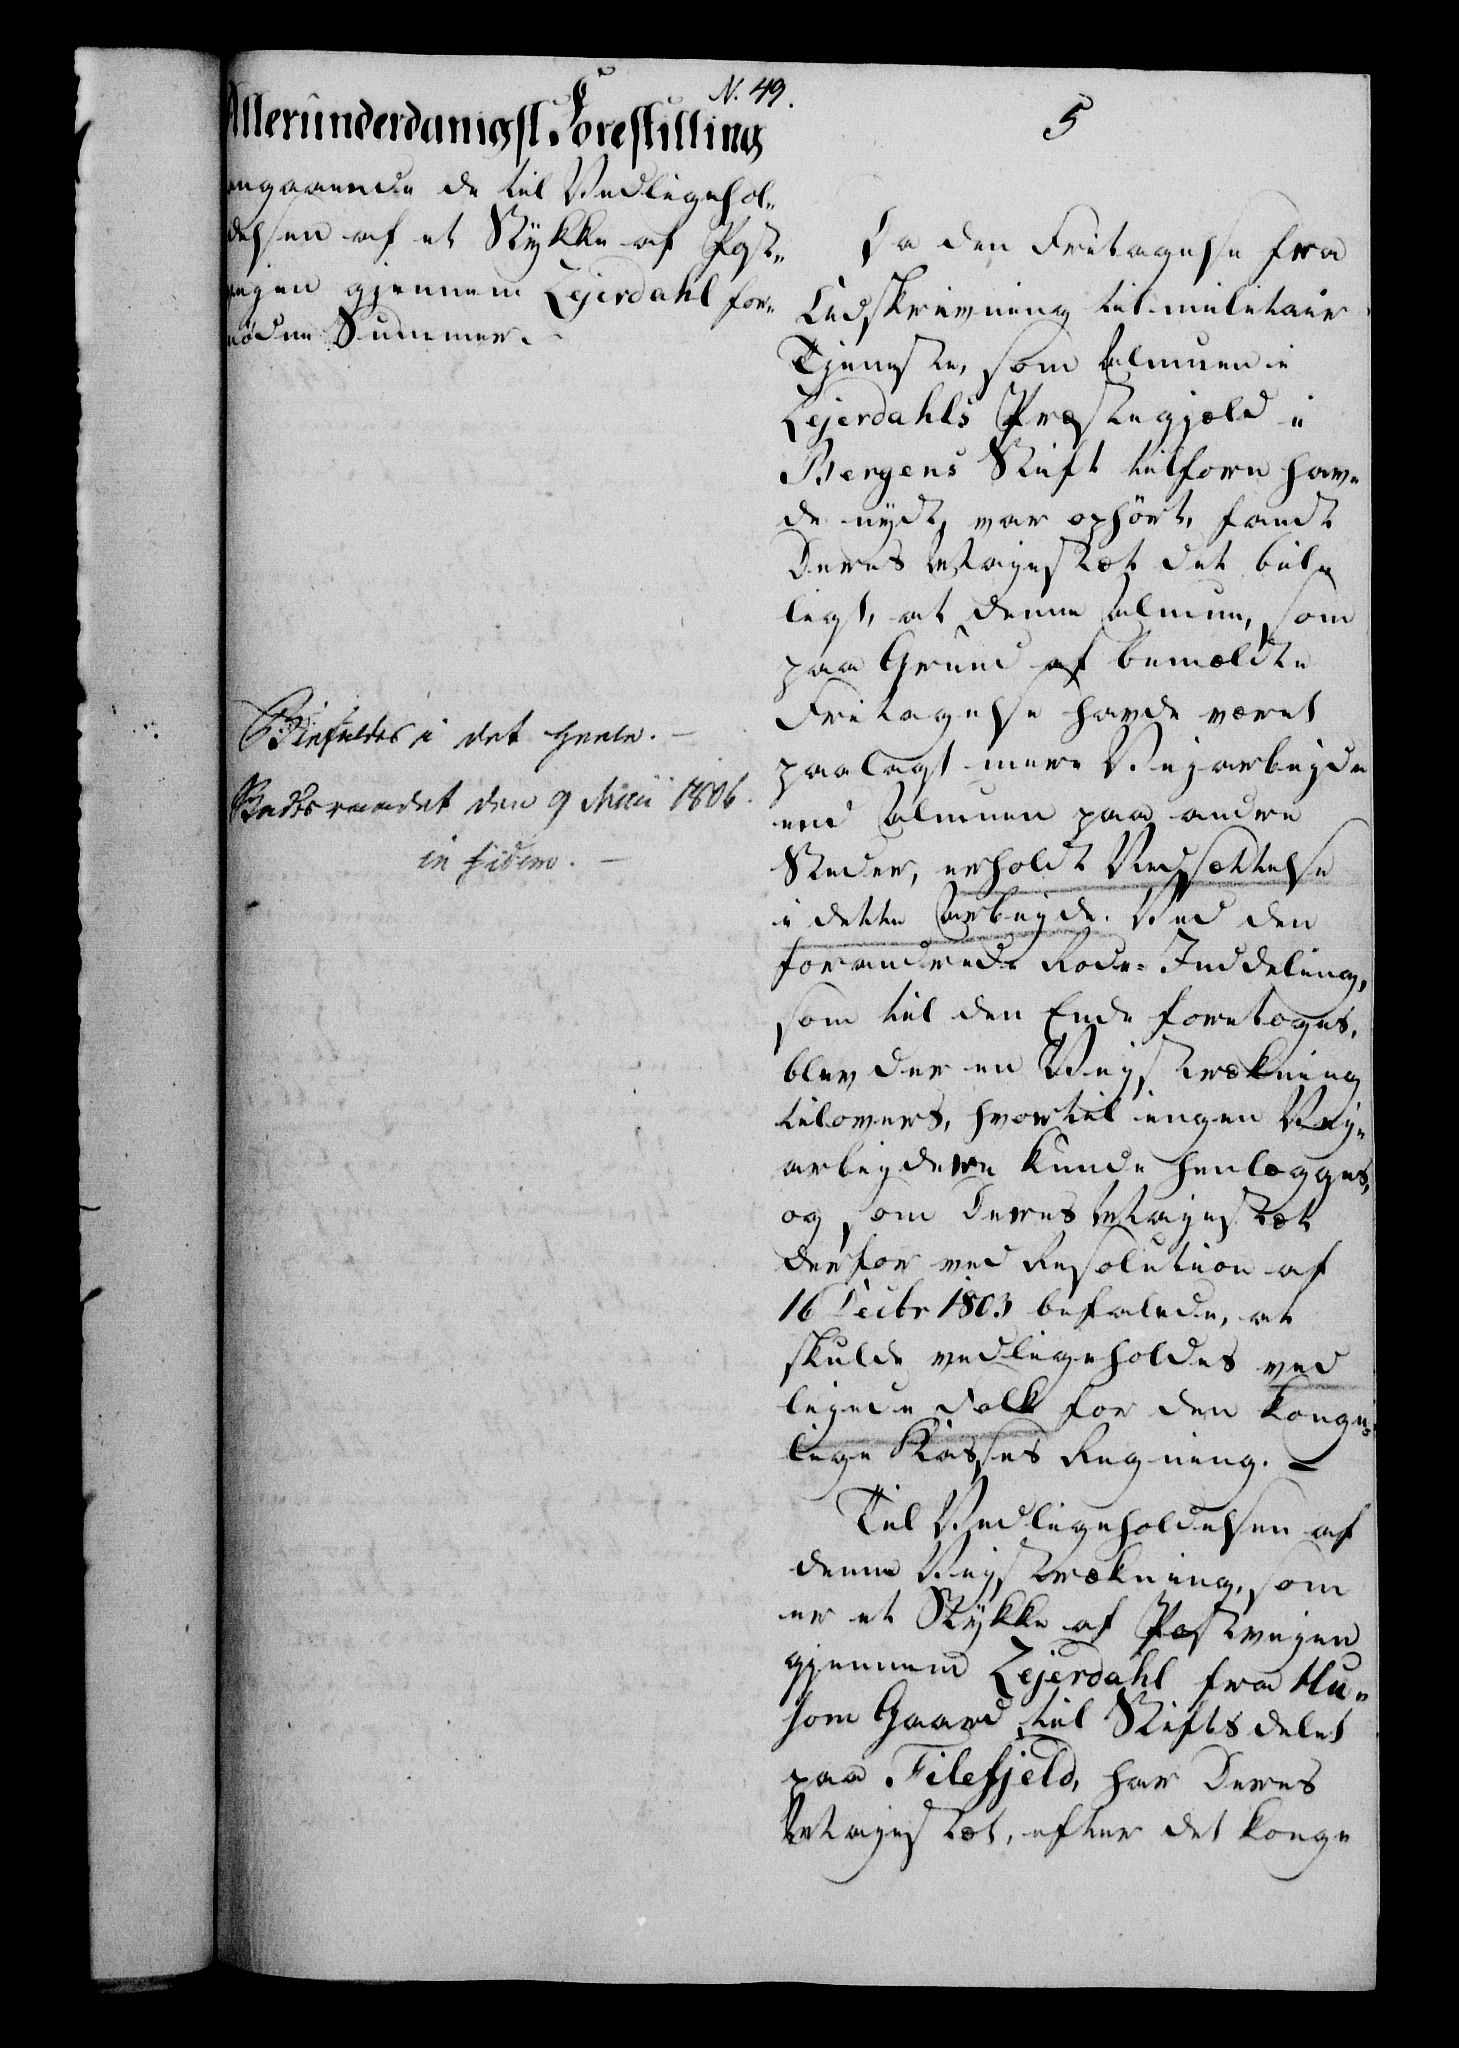 N. 49.
5
Allerunderdanigst Forestilling
angaaende de til Vedligehol-
delsen af et Stykke af Post-
vejen gjennem Lejerdahl for-
nødne Summer.
Bifaldes i det Heele.
Statsraadet den 9 Maii 1806.
in fidem.
Da den Fritagelse fra
Udskrivning til militair
Tjeneste, som Almuen i
Lejerdahls Præstegjæld i
Bergens Stift tilforn hav-
de nydt, var ophört, fandt
Deres Majestæt det bil-
ligt, at denne Almue, som
paa Grund af bemældte
Fritagelse havde været
paalagt mere Vejarbejde
end Almuen paa andre
Steder, erholdt Nedsættelse
i dette Arbejde. Ved den
forandrede Rode-Inddeling,
som til den Ende foretoges,
blev der en Vejstrækning
tilovers, hvortil ingen Vej-
arbejdere kunde henlægges,
og som Deres Majestæt
derfor ved Resolution af
16 Decbr 1803 befalede, at
skulde vedligeholdes ved
lejede Folk for den konge-
lige Kasses Regning.
Til Vedligeholdelsen af
denne Vejstrækning, som
er et Stykke af Postvejen
gjennem Lejerdahl fra Hu-
som Gaard til Stiftsdelet
paa Filefjeld, har Deres
Majestæt, efter det konge